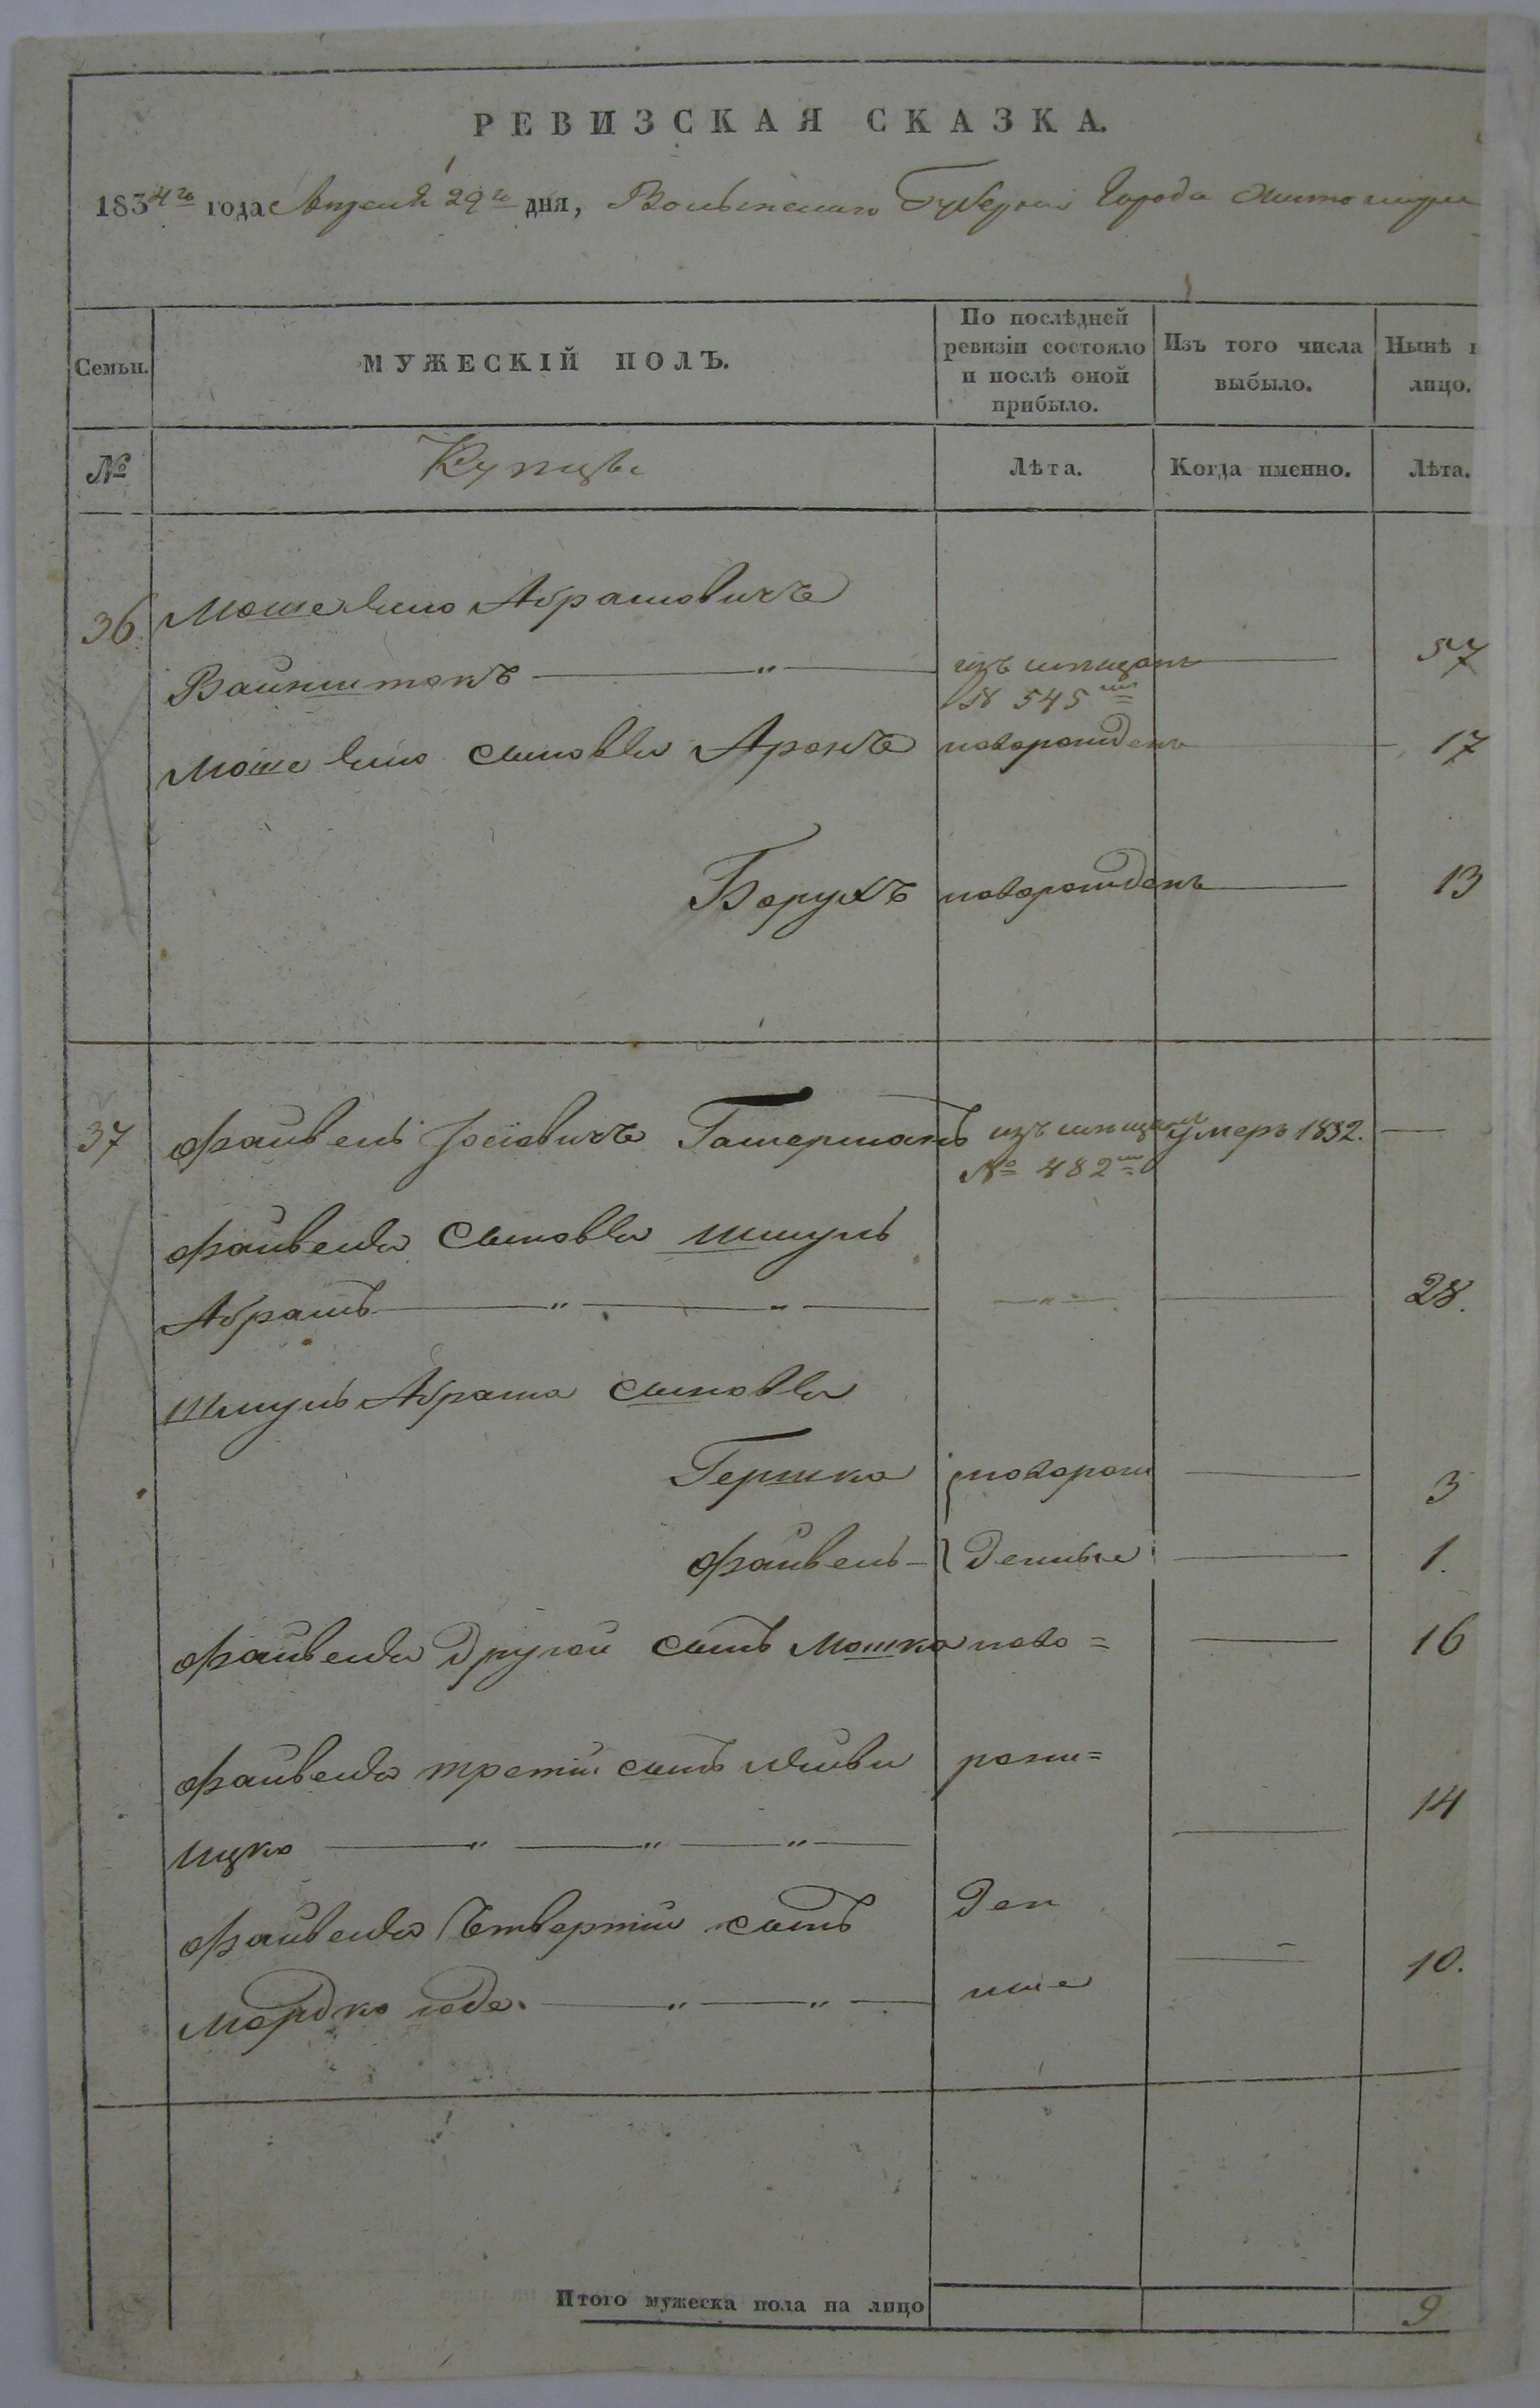 РЕВИЗСКАЯ СКАЗКА.
1834го года Апреля 29го дня, Волынской Губернии Города Житомира
Семьи. МУЖЕСКІЙ ПОЛЪ. По послѣдней ревизіи состояло и послѣ оной прибыло. Изъ того числа выбыло. Нынѣ лицо.
№ Купцы Лѣта. Когда именно. Лѣта.
36 Мошелию Абрамовичъ
Вайнштокъ — " — изъ мещанъ — 57
№ 545
Моше Лию сыновья Аронъ новорожденъ — 17
Борухъ новорожденъ — 13
37 Файвель Іосіовичъ Гамерманъ изъ мещанъ умеръ 1832. —
№ 482
Файвеля сыновья Шмуль
Абрамъ — " — " — — " — — 28.
Шмуль Абрама сыновья
Гершко новорож — 3
Файвель — денные — 1.
Файвеля другой сынъ Мошко ново= — 16
Файвеля третій сынъ рож=
Ицко — " — " — " — — 14
Файвеля Четвертый сынъ ден
Мордко — " — " — ные — 10.
Итого мужеска пола на лицо 9